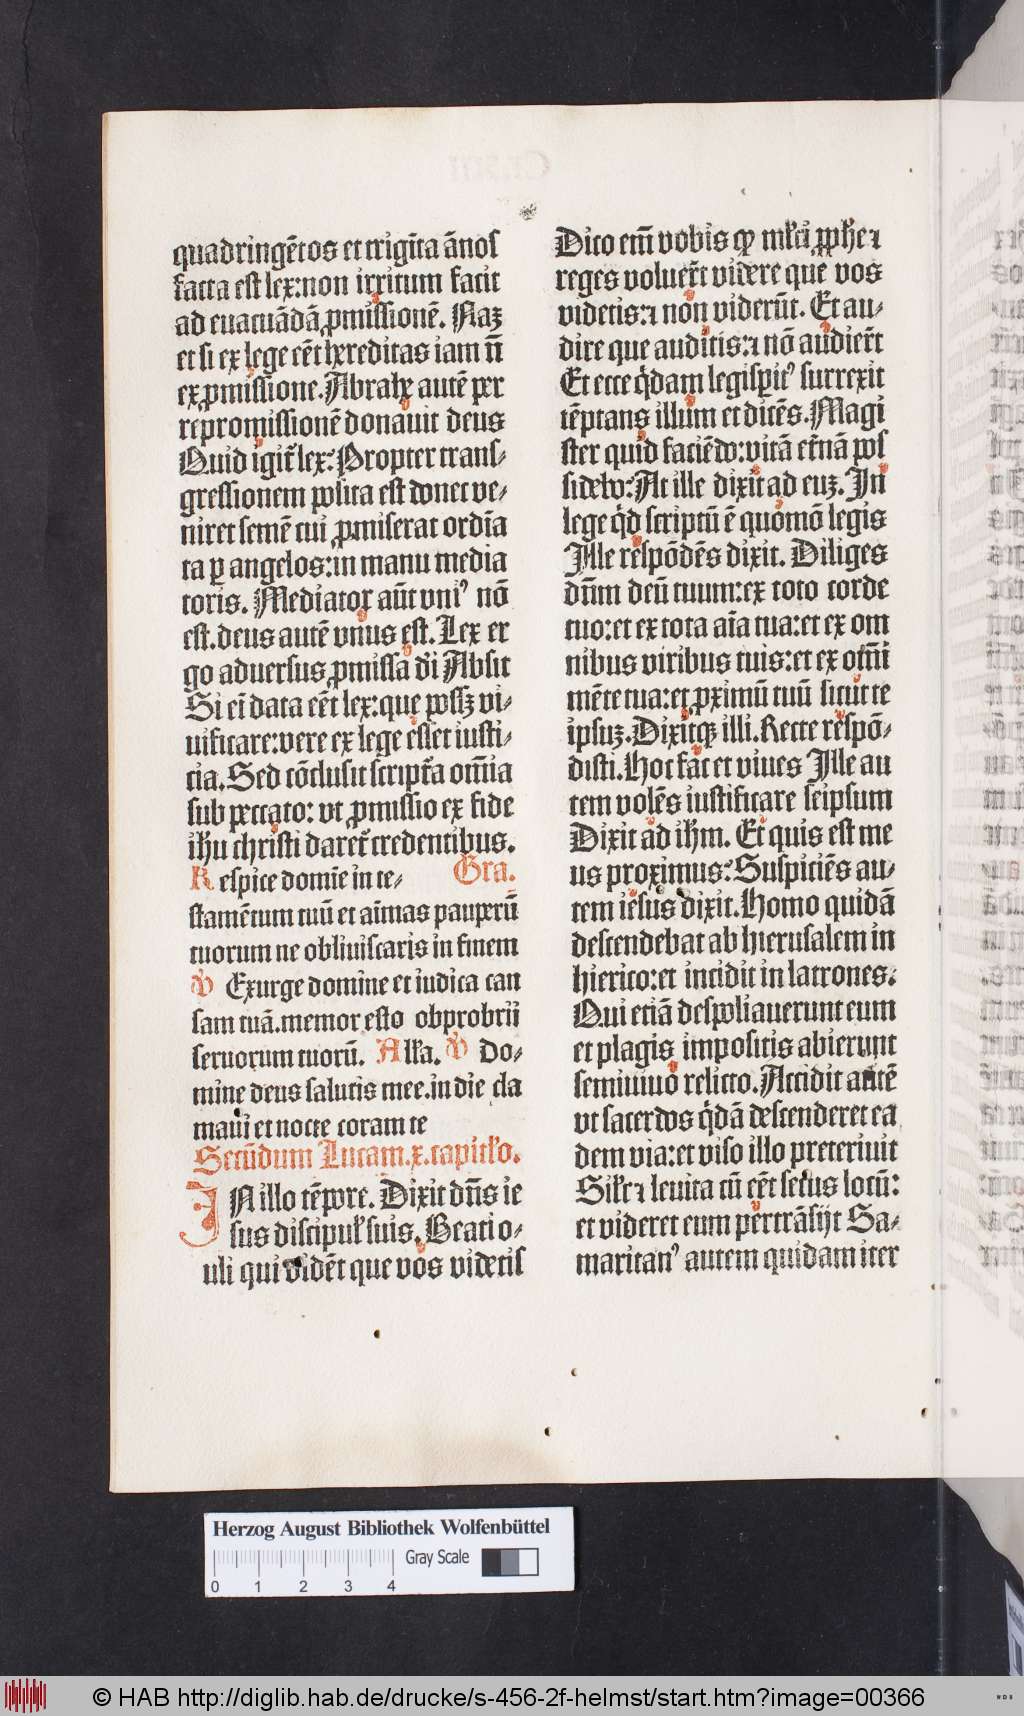 quadringẽtos et trigĩta ãnos
facta est lex: non irritum facit
ad euacuãdã ꝓmissionẽ. Naꝫ
et si ex lege eẽt hereditas iam nõ
ex ꝓmissiõne. Abrahe autẽ per
repromissionẽ donauit deus
Quid igit̃ lex? Propter trans⸗
gressionem posita est donec ve⸗
niret semẽ cui ꝓmiserat ordiã
ta ꝑ angelos: in manu media
toris. Mediator aũt vniꝰ nõ
est. deus autẽ vnus est. Lex er
go aduersus ꝓmissa di Absit
Si eĩ data eẽt lex: que possꝫ vi⸗
uificare: vere ex lege esset iusti⸗
cia. Sed cõclusit script̃a om̃ia
sub peccato: vt ꝓmissio ex fide
ihũ christi daret̃ credentibus.
Respice domĩe in te⸗ Gra.
stamẽtum tuũ et aĩmas pauperũ
tuorum ne obliuiscaris in finem
V Exurge domine et iudica cau
sam tuã. memor esto obprobrii
seruorum tuorũ. Alła. V Do⸗
mine deus salutis mee. in die cla
maui et nocte coram te
Secũdum Lucam. x. capitło.
IN illo tẽpore. Dixit dñs ie
sus discipuł suis. Beati o⸗
culi qui vidẽt que vos videtis
Dico em̃ vobis ꝙ młti ꝓphe ⁊
reges voluer̃t videre que vos
videtis: ⁊ non viderũt. Et au⸗
dire que auditis: ⁊ nõ audier̃t
Et ecce q̇dam legisꝑitꝰ surrexit
tẽptans illum et dicẽs. Magi
ster quid faciẽdo: vitã et̃nã pos
sidebo? At ille dixit ad euꝫ. In
lege q̇d scriptũ ẽ quomõ legis
Ille respõdẽs dixit. Diliges
dñm deũ tuum: ex toto corde
tuo: et ex tota aĩa tua: et ex om
nibus viribus tuis: et ex om̃i
mẽte tua: et ꝓximũ tuũ sicut te
ipsuꝫ. Dixitqꝫ illi. Recte respõ⸗
disti. Hoc fac et viues Ille au
tem volẽs iustificare seipsum
Dixit ad ihm̃. Et quis est me
us proximus? Suspiciẽs au⸗
tem iesus dixit. Homo quidã
descendebat ab hierusalem in
hierico: et incidit in latrones.
Qui etiã despoliauerunt eum
et plagis impositis abierunt
semiuiuo relicto. Accidit autẽ
vt sacerdos q̇dã descenderet ea
dem via: et viso illo preteriuit
Siłr ⁊ leuita cũ eẽt secus locũ:
et videret eum pertrãsijt Sa⸗
maritanꝰ autem quidam iter
Herzog August Bibliothek Wolfenbüttel
Gray Scale
0 1 2 3 4
© HAB http://diglib.hab.de/drucke/s-456-2f-helmst/start.htm?image=00366